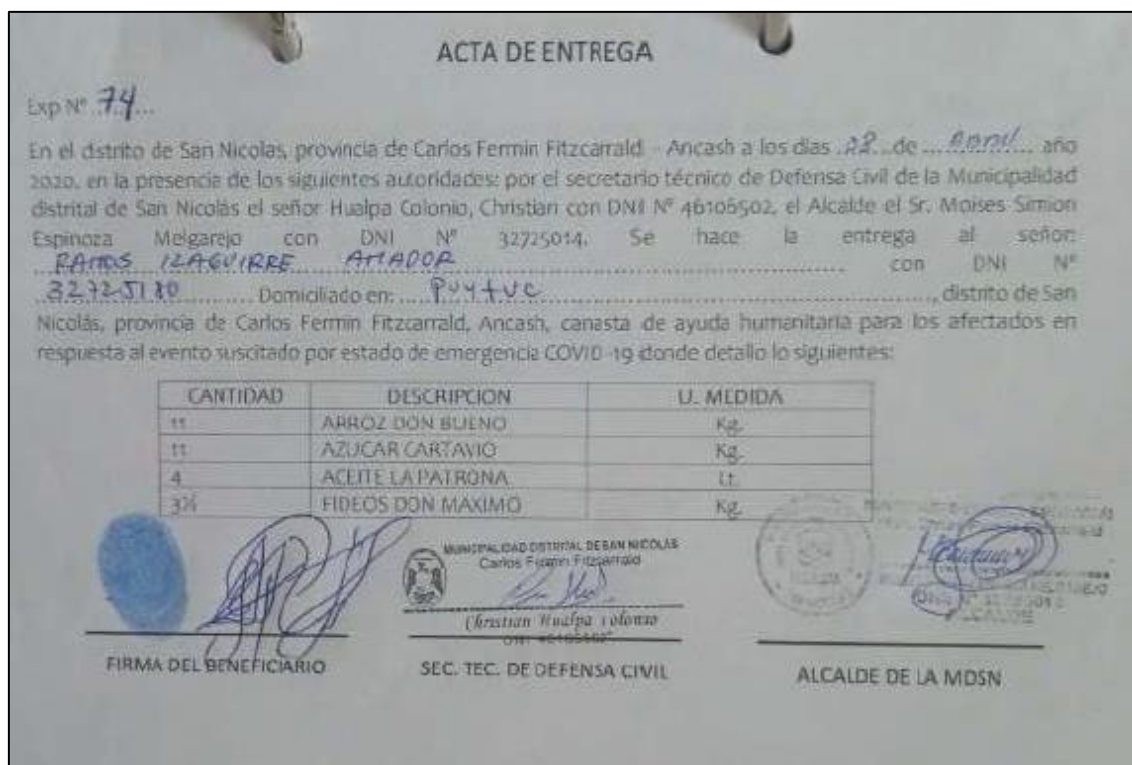 ACTA DE ENTREGA
Exp Nº 74
En el distrito de San Nicolas, provincia de Carlos Fermin Fitzcarrald - Ancash a los días 28 de Abril año
2020, en la presencia de los siguientes autoridades: por el secretario técnico de Defensa Civil de la Municipalidad
distrital de San Nicolás el señor Hualpa Colonio, Christian con DNI Nº 46106502, el Alcalde el Sr. Moises Simion
Espinoza Melgarejo con DNI Nº 32725014. Se hace la entrega al señor:
RAMOS IZAGUIRRE AMADOR con DNI Nº
Domiciliado en: , distrito de San
Nicolás, provincia de Carlos Fermin Fitzcarrald, Ancash, canasta de ayuda humanitaria para los afectados en
respuesta al evento suscitado por estado de emergencia COVID -19 donde detallo lo siguientes:
CANTIDAD DESCRIPCION U. MEDIDA
11 ARROZ DON BUENO Kg.
11 AZUCAR CARTAVIO Kg.
4 ACEITE LA PATRONA Lt.
FIDEOS DON MAXIMO Kg.
MUNICIPALIDAD DISTRITAL DE SAN NICOLÁS
Carlos Fermin Fitzcarrald
Christian Hualpa Colonio
FIRMA DEL BENEFICIARIO
SEC. TEC. DE DEFENSA CIVIL
ALCALDE DE LA MDSN